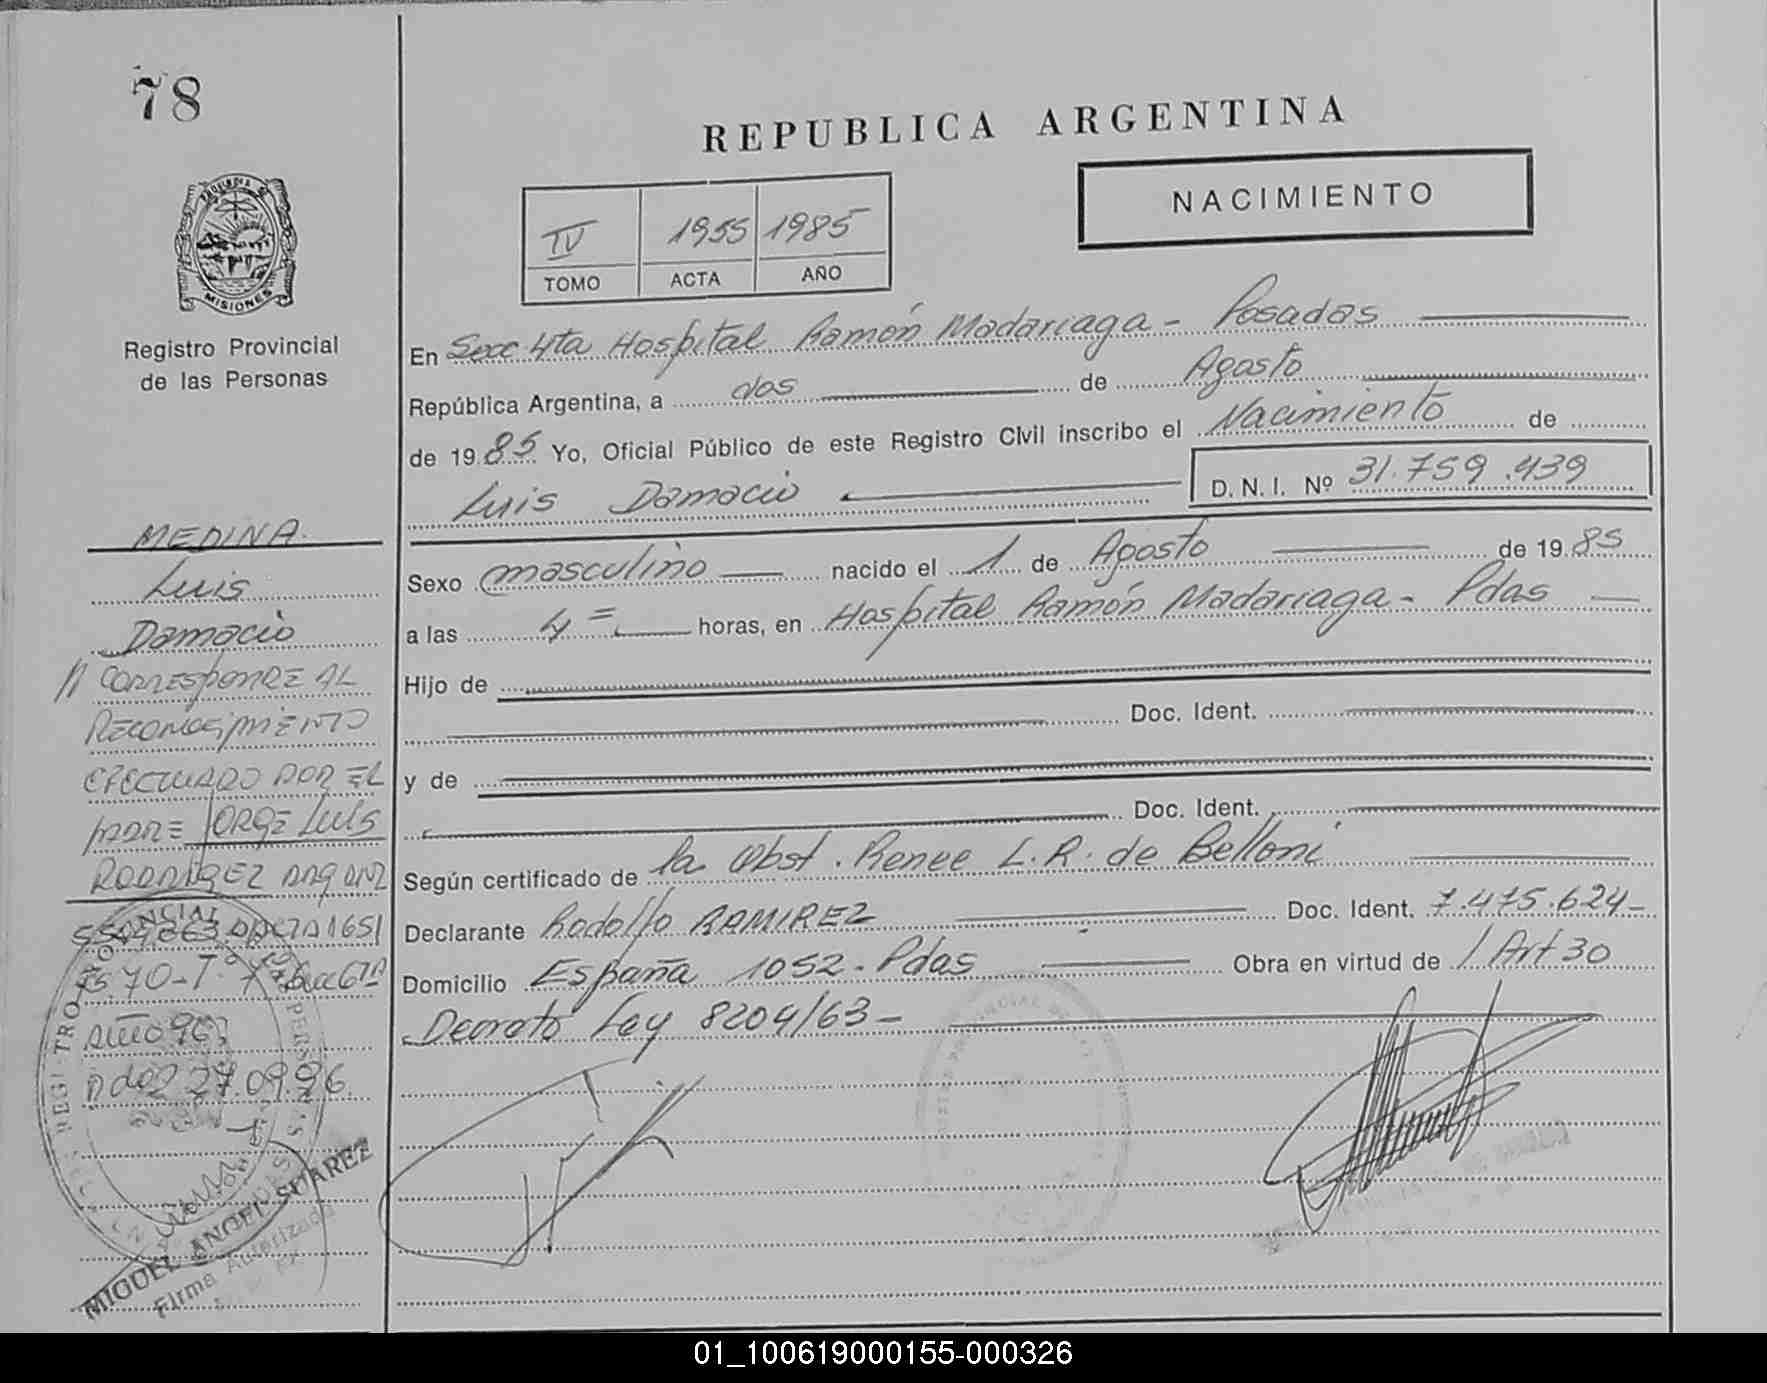 78
REPUBLICA ARGENTINA
NACIMIENTO
IV 1955 1985
TOMO ACTA AÑO
PROVINCIA DE
MISIONES
Registro Provincial
de las Personas
En Secc 4ta Hospital Ramón Madariaga - Posadas
República Argentina, a dos de Agosto
de 1985 Yo, Oficial Público de este Registro Civil inscribo el Nacimiento de
Luis Damacio D. N. I. Nº 31.759.439
Sexo masculino nacido el 1 de Agosto de 1985
a las 4= horas, en Hospital Ramón Madariaga - Pdas
Hijo de
Doc. Ident.
y de
Doc. Ident.
Según certificado de la Obst. Renee L. R. de Belloni
Declarante Rodolfo RAMIREZ Doc. Ident. 7.475.624-
Domicilio España 1052 - Pdas Obra en virtud de / Art 30
Decreto Ley 8204/63-
MEDINA.
Luis
Damacio
// CORRESPONDE AL
RECONOCIMIENTO
EFECTUADO POR EL
PADRE JORGE LUIS
RODRIGUEZ
ACTA 1651
Fs. 70 - Tº
AÑO 96
27.09.96.
MIGUEL ANGEL SUAREZ
Firma Autorizada
01_100619000155-000326